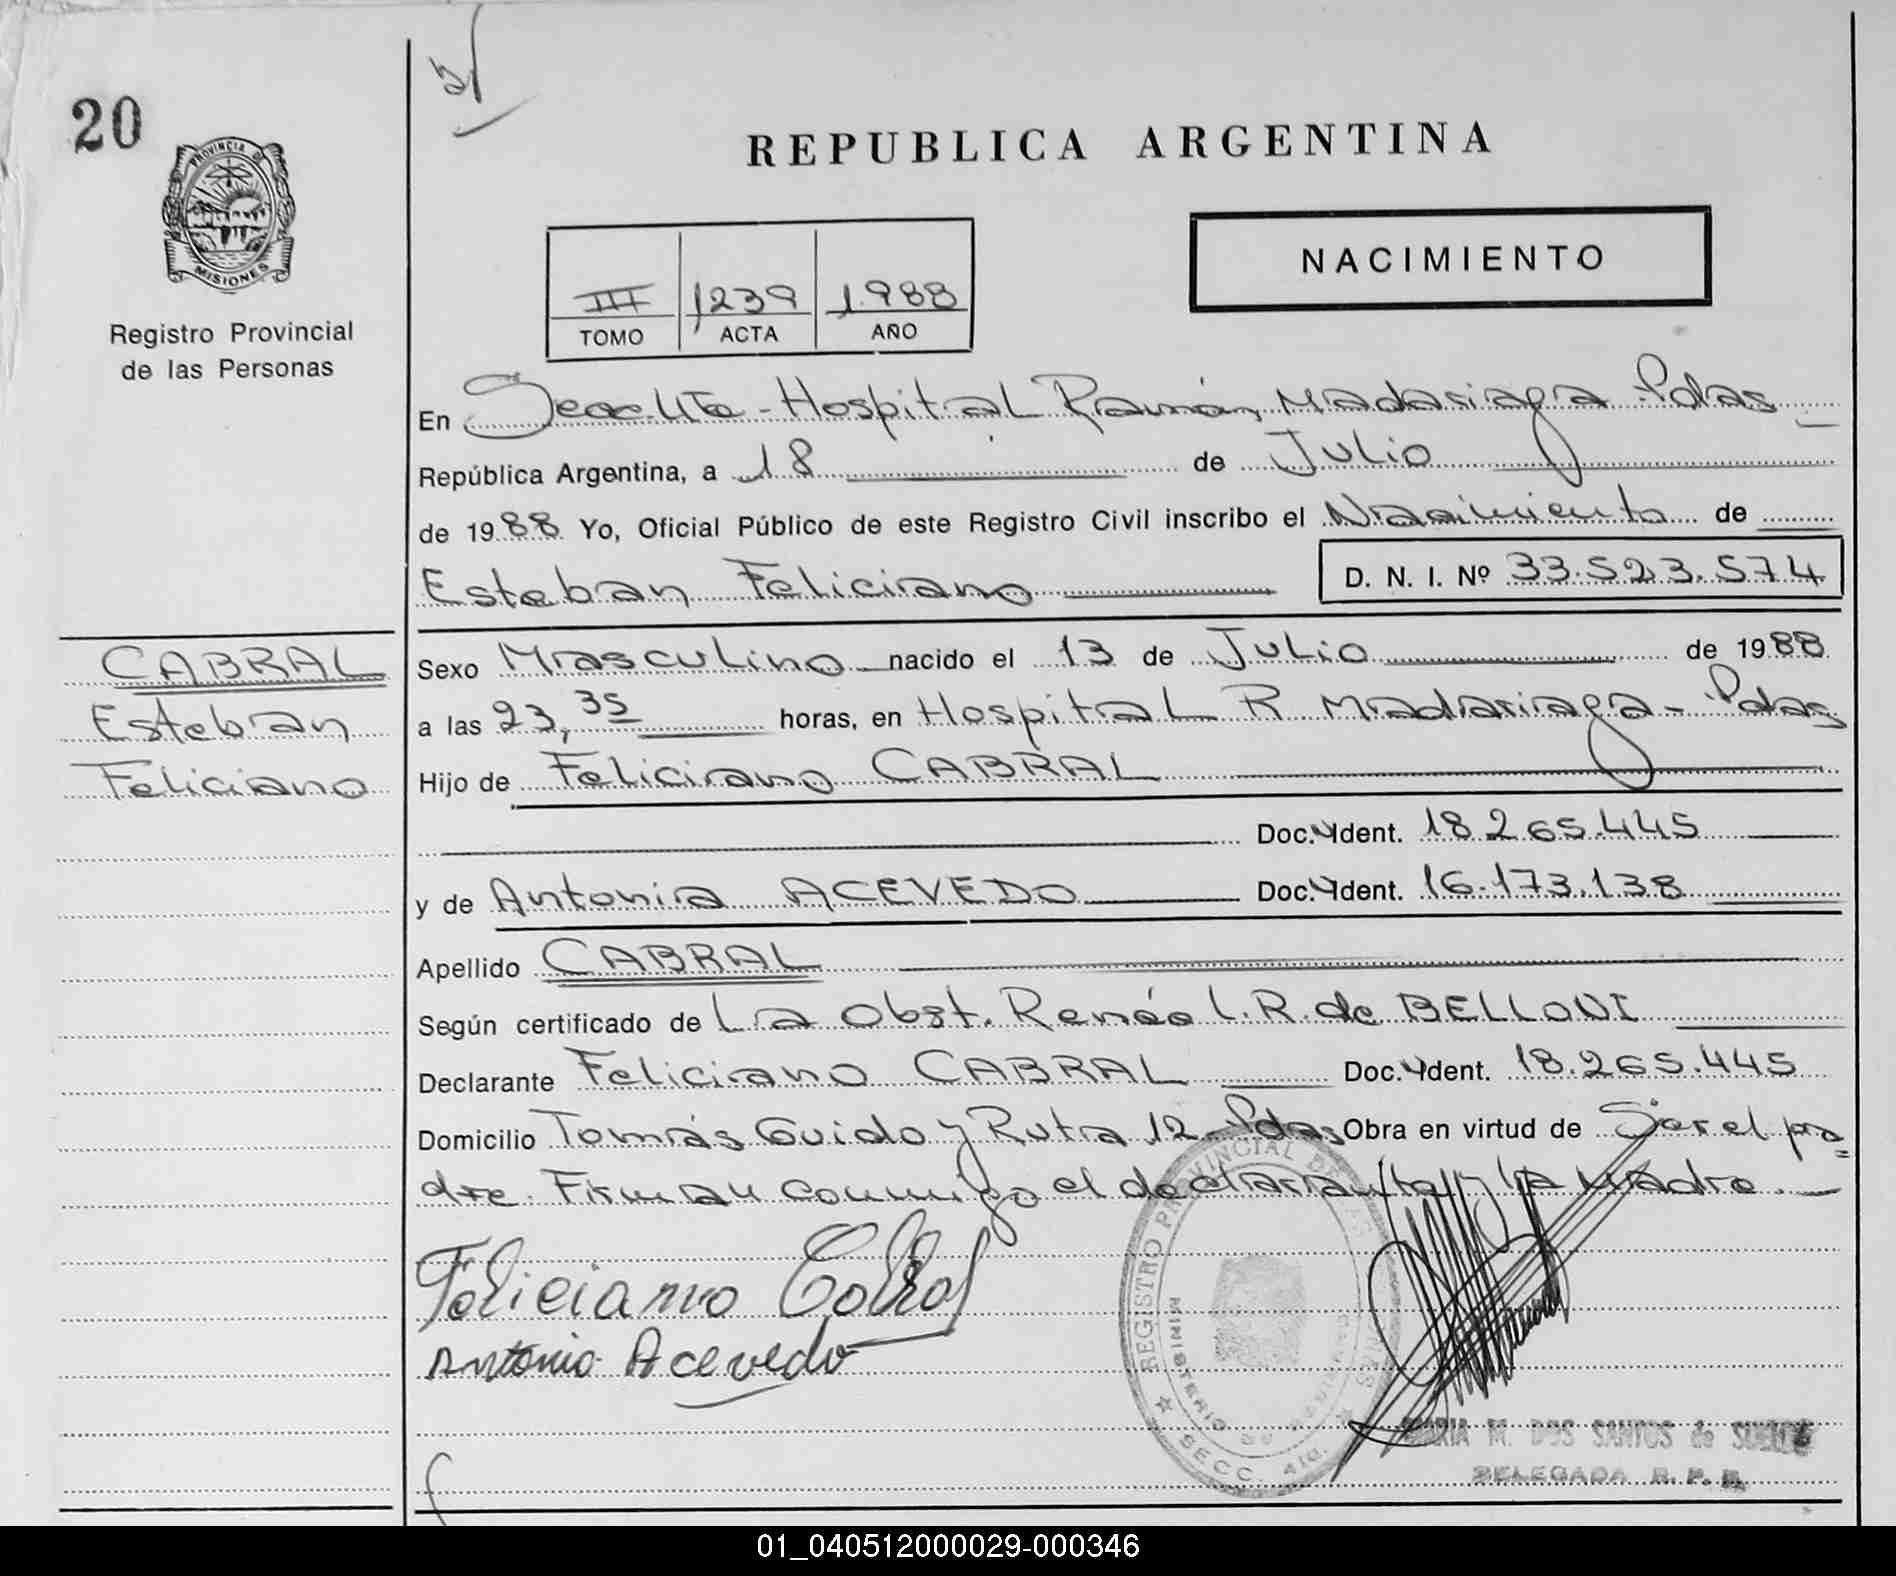 20
PROVINCIA DE
MISIONES
Registro Provincial
de las Personas
REPUBLICA ARGENTINA
NACIMIENTO
III 1239 1988
TOMO ACTA AÑO
En Secc. 4Ta - Hospital Ramón Madariaga Pdas
República Argentina, a 18 de Julio
de 1988 Yo, Oficial Público de este Registro Civil inscribo el Nacimiento de
Esteban Feliciano D. N. I. Nº 33.523.574
CABRAL
Esteban
Feliciano
Sexo Masculino nacido el 13 de Julio de 1988
a las 23,35 horas, en Hospital R Madariaga - Pdas
Hijo de Feliciano CABRAL
Doc. Ident. 18.265.445
y de Antonia ACEVEDO Doc. Ident. 16.173.138
Apellido CABRAL
Según certificado de La Obst. Renée L. R. de BELLONI
Declarante Feliciano CABRAL Doc. Ident. 18.265.445
Domicilio Tomás Guido y Ruta 12 - Pdas Obra en virtud de Ser el pa=
dre. Firman conmigo el declarante y la Madre.
Feliciano Cabral
Antonia Acevedo
REGISTRO PROVINCIAL DE LAS
MINISTERIO DE
SECC. 4ta.
MARIA M. DOS SANTOS de
DELEGADA R. P. P.
01_040512000029-000346